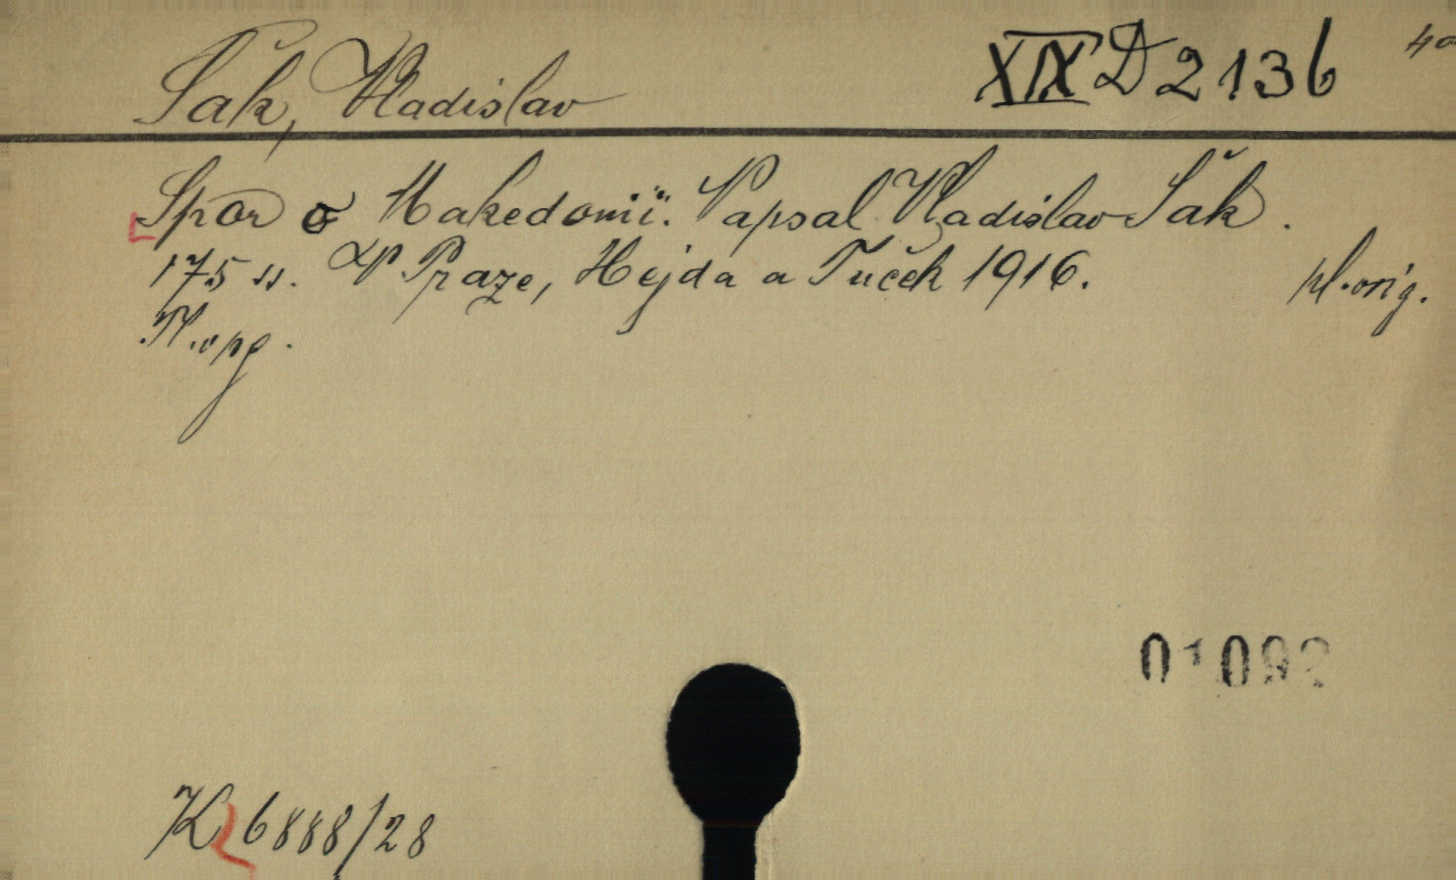 Šak, Vladislav XIX D 2136 40
Spor o Makedonii. Napsal Vladislav Šak.
175 ss. V Praze, Hejda a Tuček 1916. pl. orig.
Pl. opg.
01092
K 6888/28